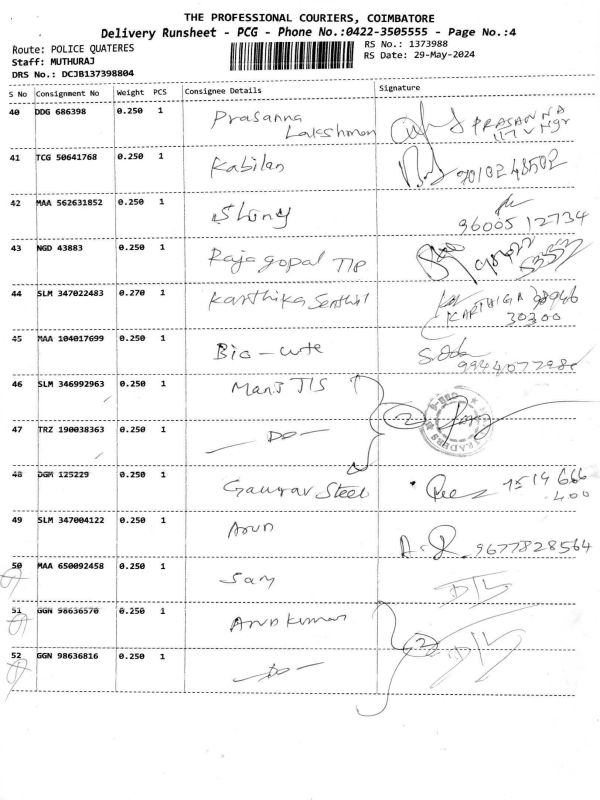 THE PROFESSIONAL COURIERS, COIMBATORE
Delivery Runsheet - PCG - Phone No.:0422-3505555 - Page No.:4
Route: POLICE QUATERES
Staff: MUTHURAJ
DRS No.: DCJB137398804
RS No.: 1373988
RS Date: 29-May-2024
S No Consignment No Weight PCS Consignee Details Signature
40 DDG 686398 0.250 1 Prasanna Lakshmon PRASANNA
41 TCG 50641768 0.250 1 Kabilan
42 MAA 562631852 0.250 1 9600512734
43 NGD 43883 0.250 1 Rajagopal TIP
44 SLM 347022483 0.270 1 Karthika Senthil KARTHIGA
30300
45 MAA 104017699 0.250 1 Bio-cute
46 SLM 346992963 0.250 1 2
47 TRZ 190038363 0.250 1 -DO- TRADERS
48 DGM 125229 0.250 1 Gaurav Steel 7514 666
400
49 SLM 347004122 0.250 1 Arun 9677828564
50 MAA 650092458 0.250 1 Sam D/L
51 GGN 98636570 0.250 1 Arun kumar 2
52 GGN 98636816 0.250 1 -DO- D/L